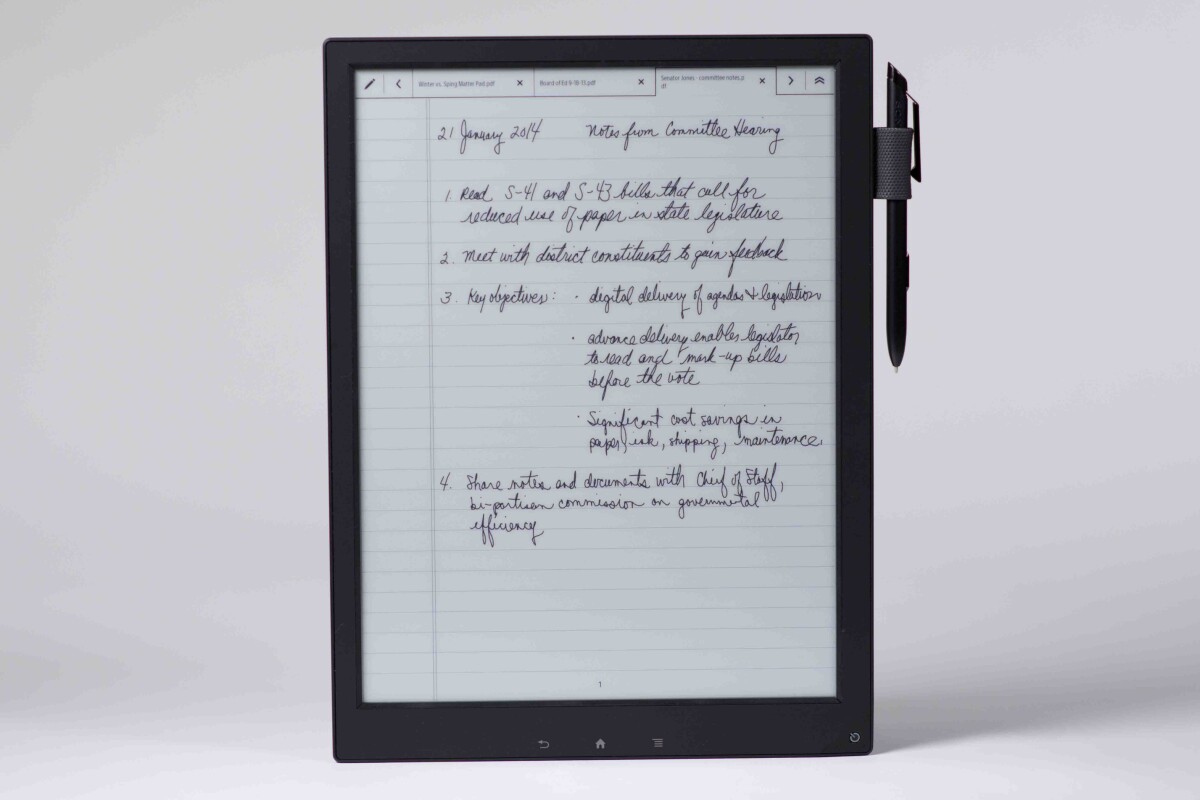 Winter vs. Spring Matter Past.pdf
Board of Ed 9-18-13.pdf
Senator Jones - committee notes_p
df
21 January 2014 Notes from Committee Hearing
1. Read S-41 and S-43 bills that call for
reduced use of paper in state legislature
2. Meet with district constituents to gain feedback
3. Key objectives: · digital delivery of agendas & legislation
· advance delivery enables legislator
to read and mark-up bills
before the vote
· Significant cost savings in
paper, ink, shipping, maintenance
4. Share notes and documents with Chief of Staff,
bi-partisan commission on governmetal
efficiency
1